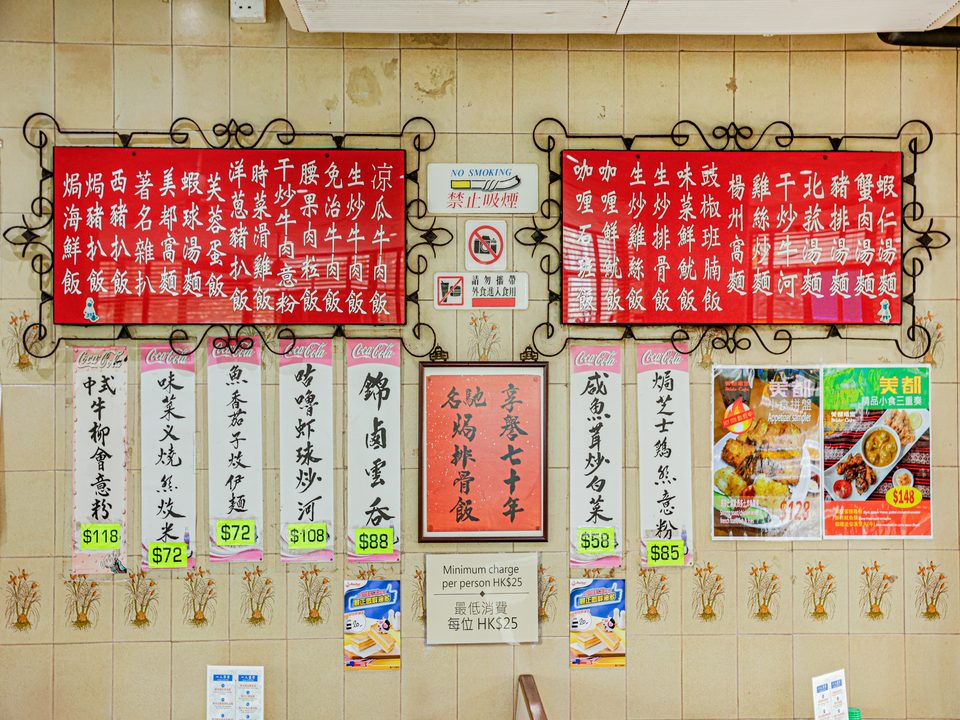 涼瓜牛肉飯
生炒牛肉飯
免治牛肉飯
腰果肉粒飯
干炒牛肉意粉
時菜滑雞飯
洋蔥豬扒飯
芙蓉蛋飯
蝦球湯麵
美都窩麵
著名雜扒
西豬扒飯
焗豬扒飯
焗海鮮飯
NO SMOKING
禁止吸煙
請勿攜帶
外食進入食用
蝦仁湯麵
蟹肉湯麵
豬排湯麵
北菰湯麵
干炒牛河
雞絲炒麵
楊州窩麵
豉椒班腩飯
味菜鮮魷飯
生炒排骨飯
生炒雞絲飯
咖喱鮮魷飯
咖喱石斑飯
Coca-Cola
中式牛柳會意粉
$118
Coca-Cola
味菜义燒絲炆米
$72
Coca-Cola
魚香茄子炆伊麵
$72
Coca-Cola
咕嚕虾球炒河
$108
Coca-Cola
錦鹵雲吞
$88
享譽七十年
馳名焗排骨飯
Coca-Cola
咸魚茸炒白菜
$58
Coca-Cola
焗芝士鷄絲意粉
$85
小食拼盤
Appetizer Samples
$128
美都
精品小食三重奏
$148
Minimum charge
per person HK$25
最低消費
每位 HK$25